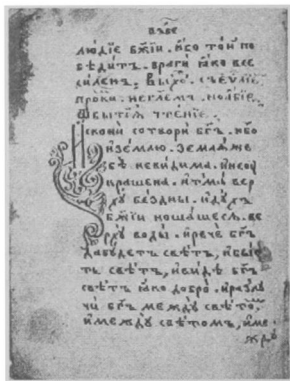 людїе бж҃їи . ꙗко той по
бѣдитъ . враги ꙗко все
силенъ
ѿ бытїѧ чтенїе
Искони сотвори бг҃ъ . нб҃о
и землю . землѧ же
бѣ невидима . и неоу
крашена . и тма вер
хꙋ бездны . и дх҃ъ
бж҃їи ношашесѧ . ве
рхꙋ воды . и рече бг҃ъ
да бꙋдетъ свѣтъ , и бы
ть свѣтъ , и видѣ бг҃ъ
свѣтъ ꙗко добро . и разлꙋ
чи бг҃ъ междꙋ свѣто
и междꙋ свѣтомъ , и ме
ждꙋ